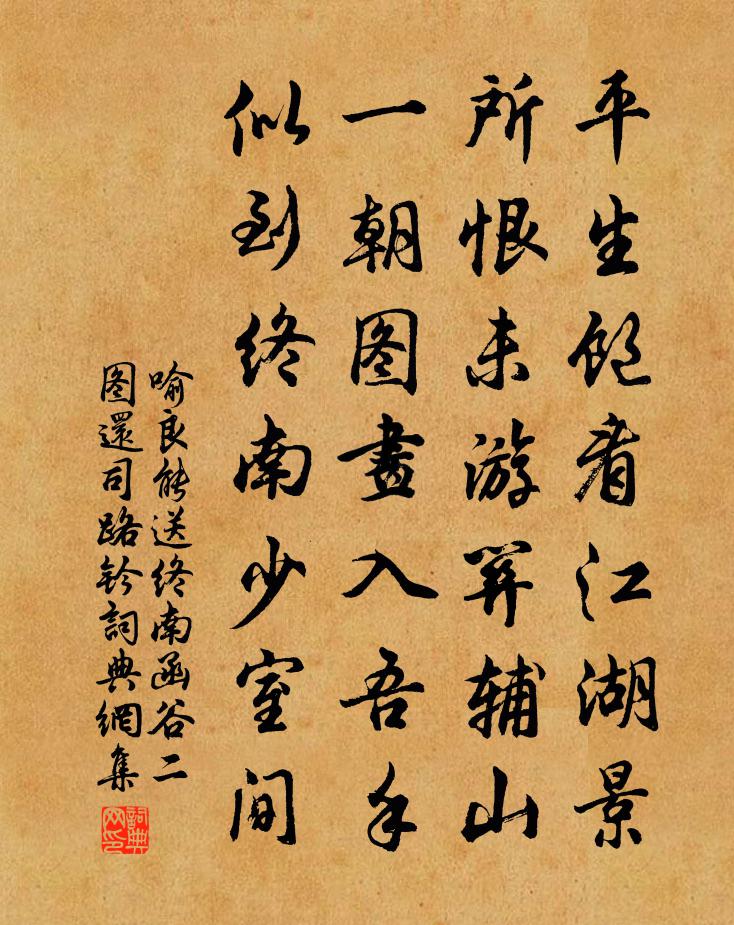 平生饱看江湖景
所恨未游关辅山
一朝图畫入吾手
似到终南少室间
喻良能送终南函谷二
图還司路钤詞典網集
詞典
网印